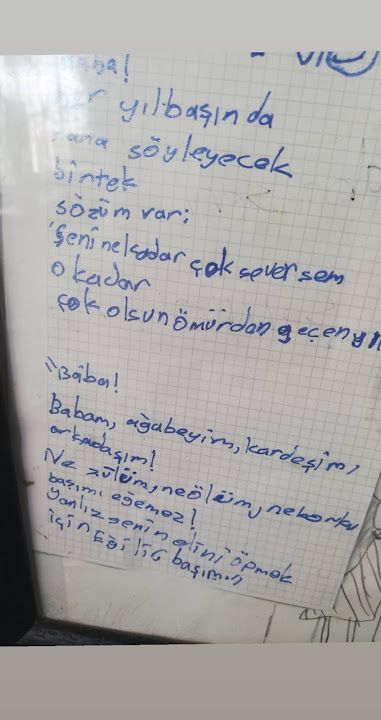 yılbaşında
sana söyleyecek
birtek
sözüm var;
"Seni nekadar çok seversem
o kadar
çok olsun ömürden geçen yıl
"Baba!
Babam, ağabeyim, kardeşim,
arkadaşım!
Ne zülüm, ne ölüm, ne korku
başımı eğemez!
Yanlız senin elini öpmek
için Eğilir başım..